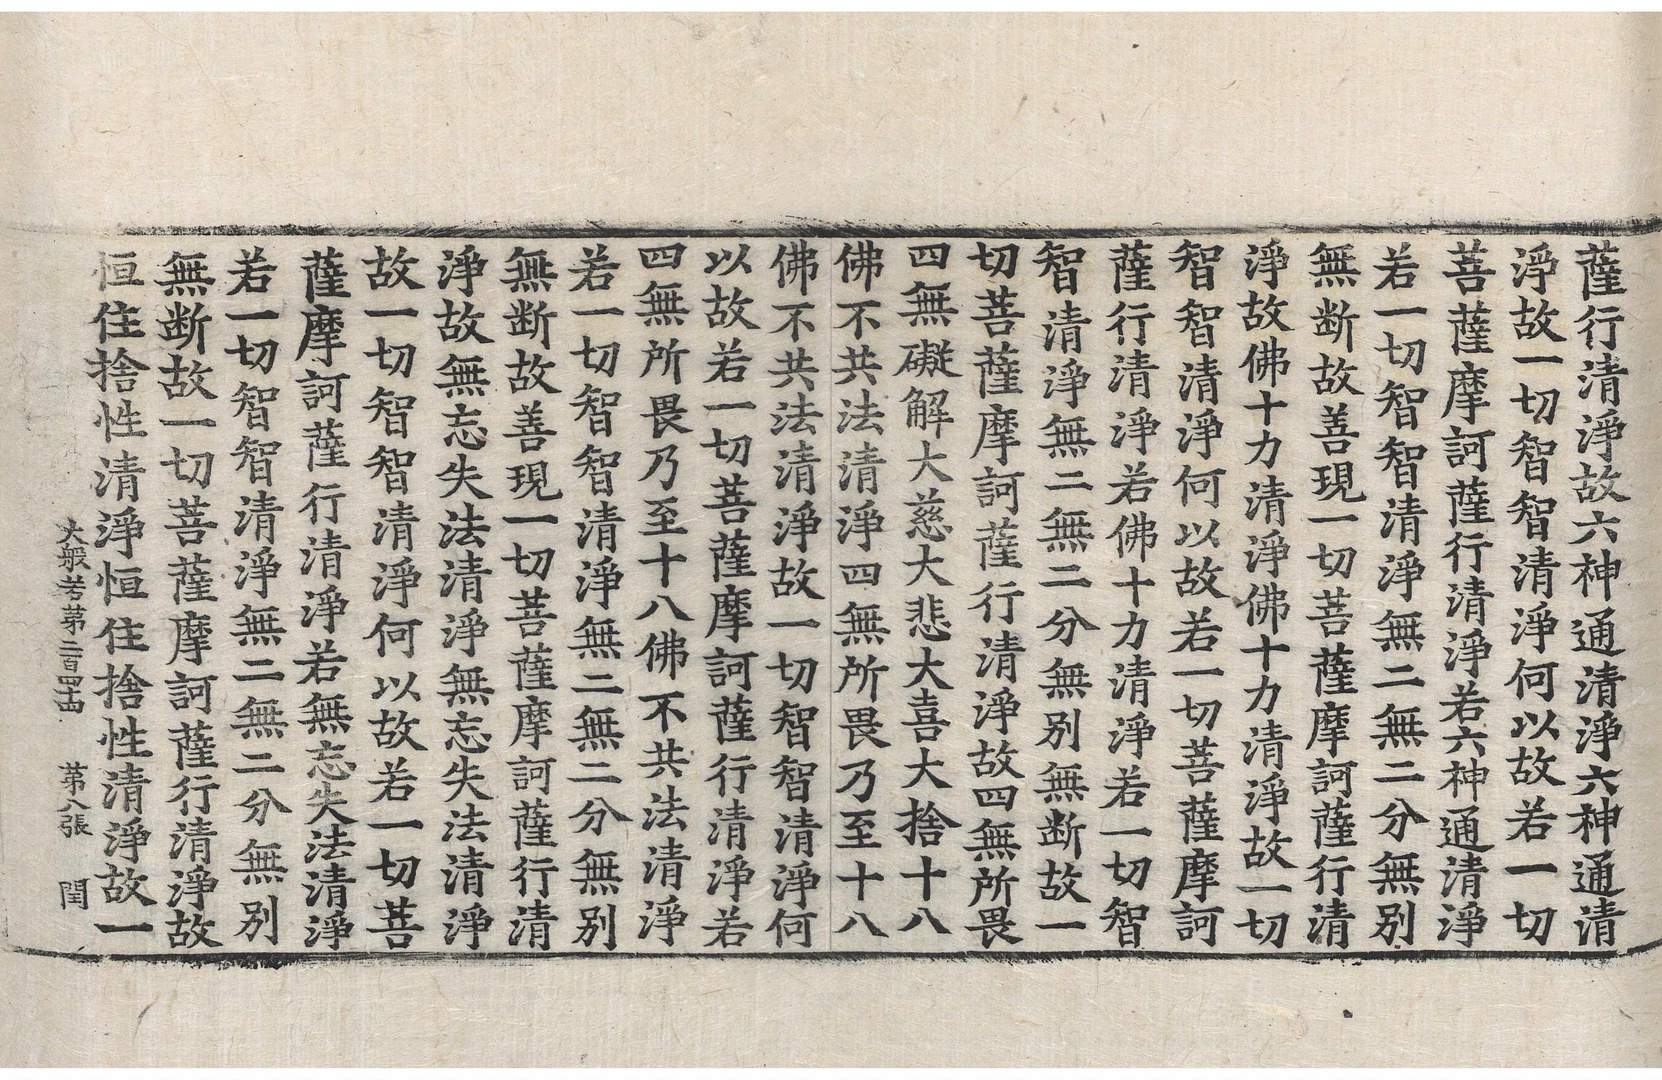 薩行清淨故六神通清淨六神通清
淨故一切智智清淨何以故若一切
菩薩摩訶薩行清淨若六神通清淨
若一切智智清淨無二無二分無別
無断故善現一切菩薩摩訶薩行清
淨故佛十力清淨佛十力清淨故一切
智智清淨何以故若一切菩薩摩訶
薩行清淨若佛十力清淨若一切智
智清淨無二無二分無別無断故一
切菩薩摩訶薩行清淨故四無所畏
四無礙解大慈大悲大喜大捨十八
佛不共法清淨四無所畏乃至十八
佛不共法清淨故一切智智清淨何
以故若一切菩薩摩訶薩行清淨若
四無所畏乃至十八佛不共法清淨
若一切智智清淨無二無二分無別
無断故善現一切菩薩摩訶薩行清
淨故無忘失法清淨無忘失法清淨
故一切智智清淨何以故若一切菩
薩摩訶薩行清淨若無忘失法清淨
若一切智智清淨無二無二分無別
無断故一切菩薩摩訶薩行清淨故
恒住捨性清淨恒住捨性清淨故一
大般若第二百四 第八張 閏